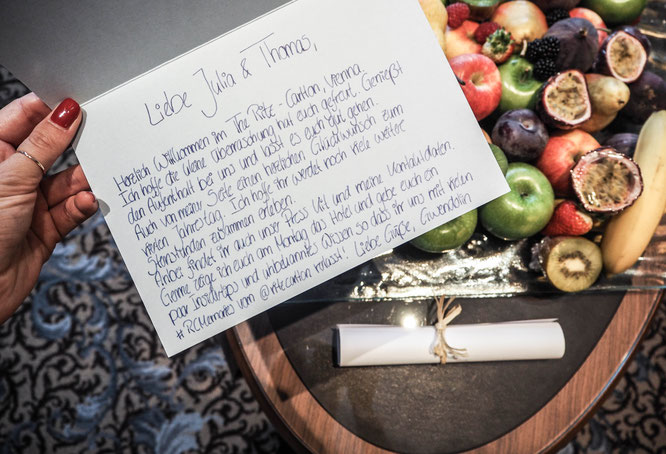 Liebe Julia & Thomas,
Herzlich Willkommen im The Ritz-Carlton, Vienna.
Ich hoffe die kleine Überraschung hat euch gefreut. Genießt
den Aufenthalt bei uns und lasst es euch gut gehen.
Auch von meiner Seite einen herzlichen Glückwunsch zum
vierten Jahrestag. Ich hoffe ihr werdet noch viele weitere
Sternstunden zusammen erleben.
Anbei findet ihr auch unser Press Kit und meine Kontaktdaten.
Gerne zeige ich euch am Montag das Hotel und gebe euch ein
paar Insidertipps und unbekanntes Wissen so dass ihr uns mit vielen
#RCMemories vom @ritzcarlton verlasst! Liebe Grüße, Gwendolin